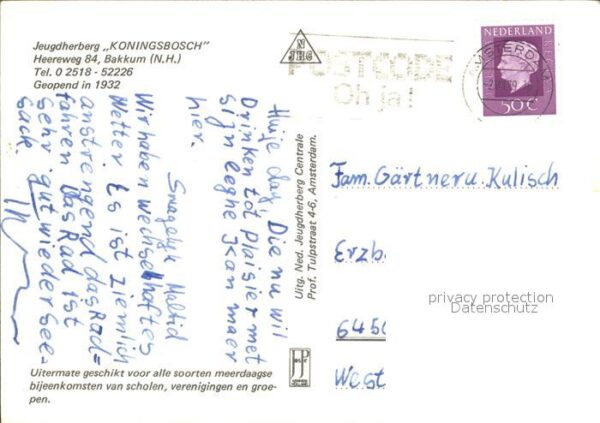 Jeugdherberg „KONINGSBOSCH"
Heereweg 84, Bakkum (N.H.)
Tel. 0 2518 - 52226
Geopend in 1932
N
JHC
POSTCODE
Oh ja!
AMSTERDAM
NEDERLAND
50c
Huije dag, Die nu wil
Drinken tot plaisier met
sijn Ik an maer
hier.
Smagelyk Maltid
Wir haben wechselhaftes
Wetter. Es ist ziemlich
anstrengend das Rad=
fahren. Das Rad ist
sehr gut wieder See-
sack.
Uitg. Ned. Jeugdherberg Centrale
Prof. Tulpstraat 4-6, Amsterdam.
Fam. Gärtner u. Kulisch
Erzb
6450
West
privacy protection
Datenschutz
Uitermate geschikt voor alle soorten meerdaagse
bijeenkomsten van scholen, verenigingen en groe-
pen.